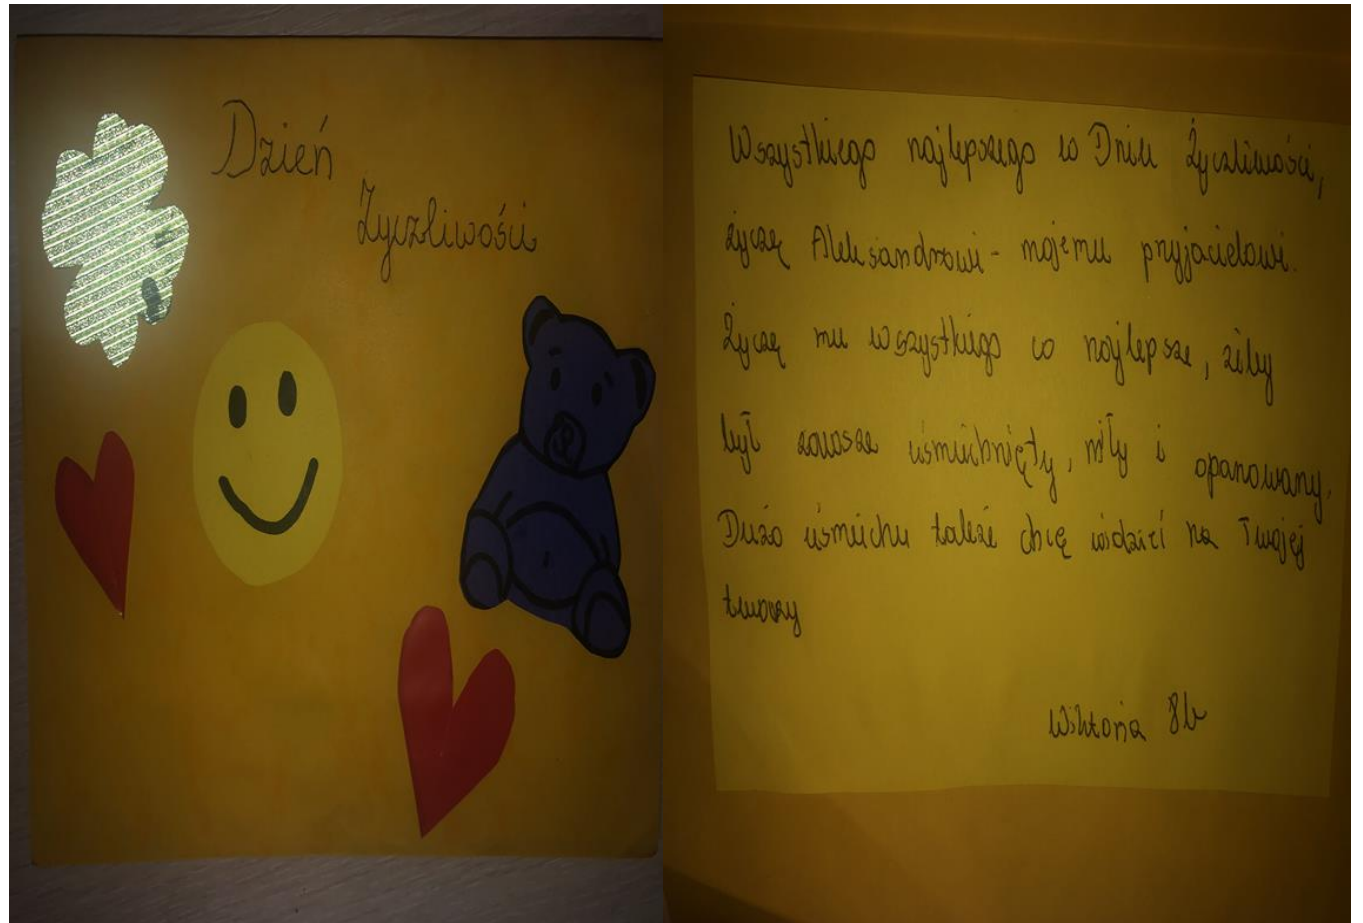 Dzień
Życzliwości
Wszystkiego najlepszego w Dniu Życzliwości,
życzę Aleksandrowi - mojemu przyjacielowi.
Życzę mu wszystkiego co najlepsze, żeby
był zawsze uśmiechnięty, miły i opanowany.
Dużo uśmiechu także chcę widzieć na Twojej
twarzy
Wiktoria 8b